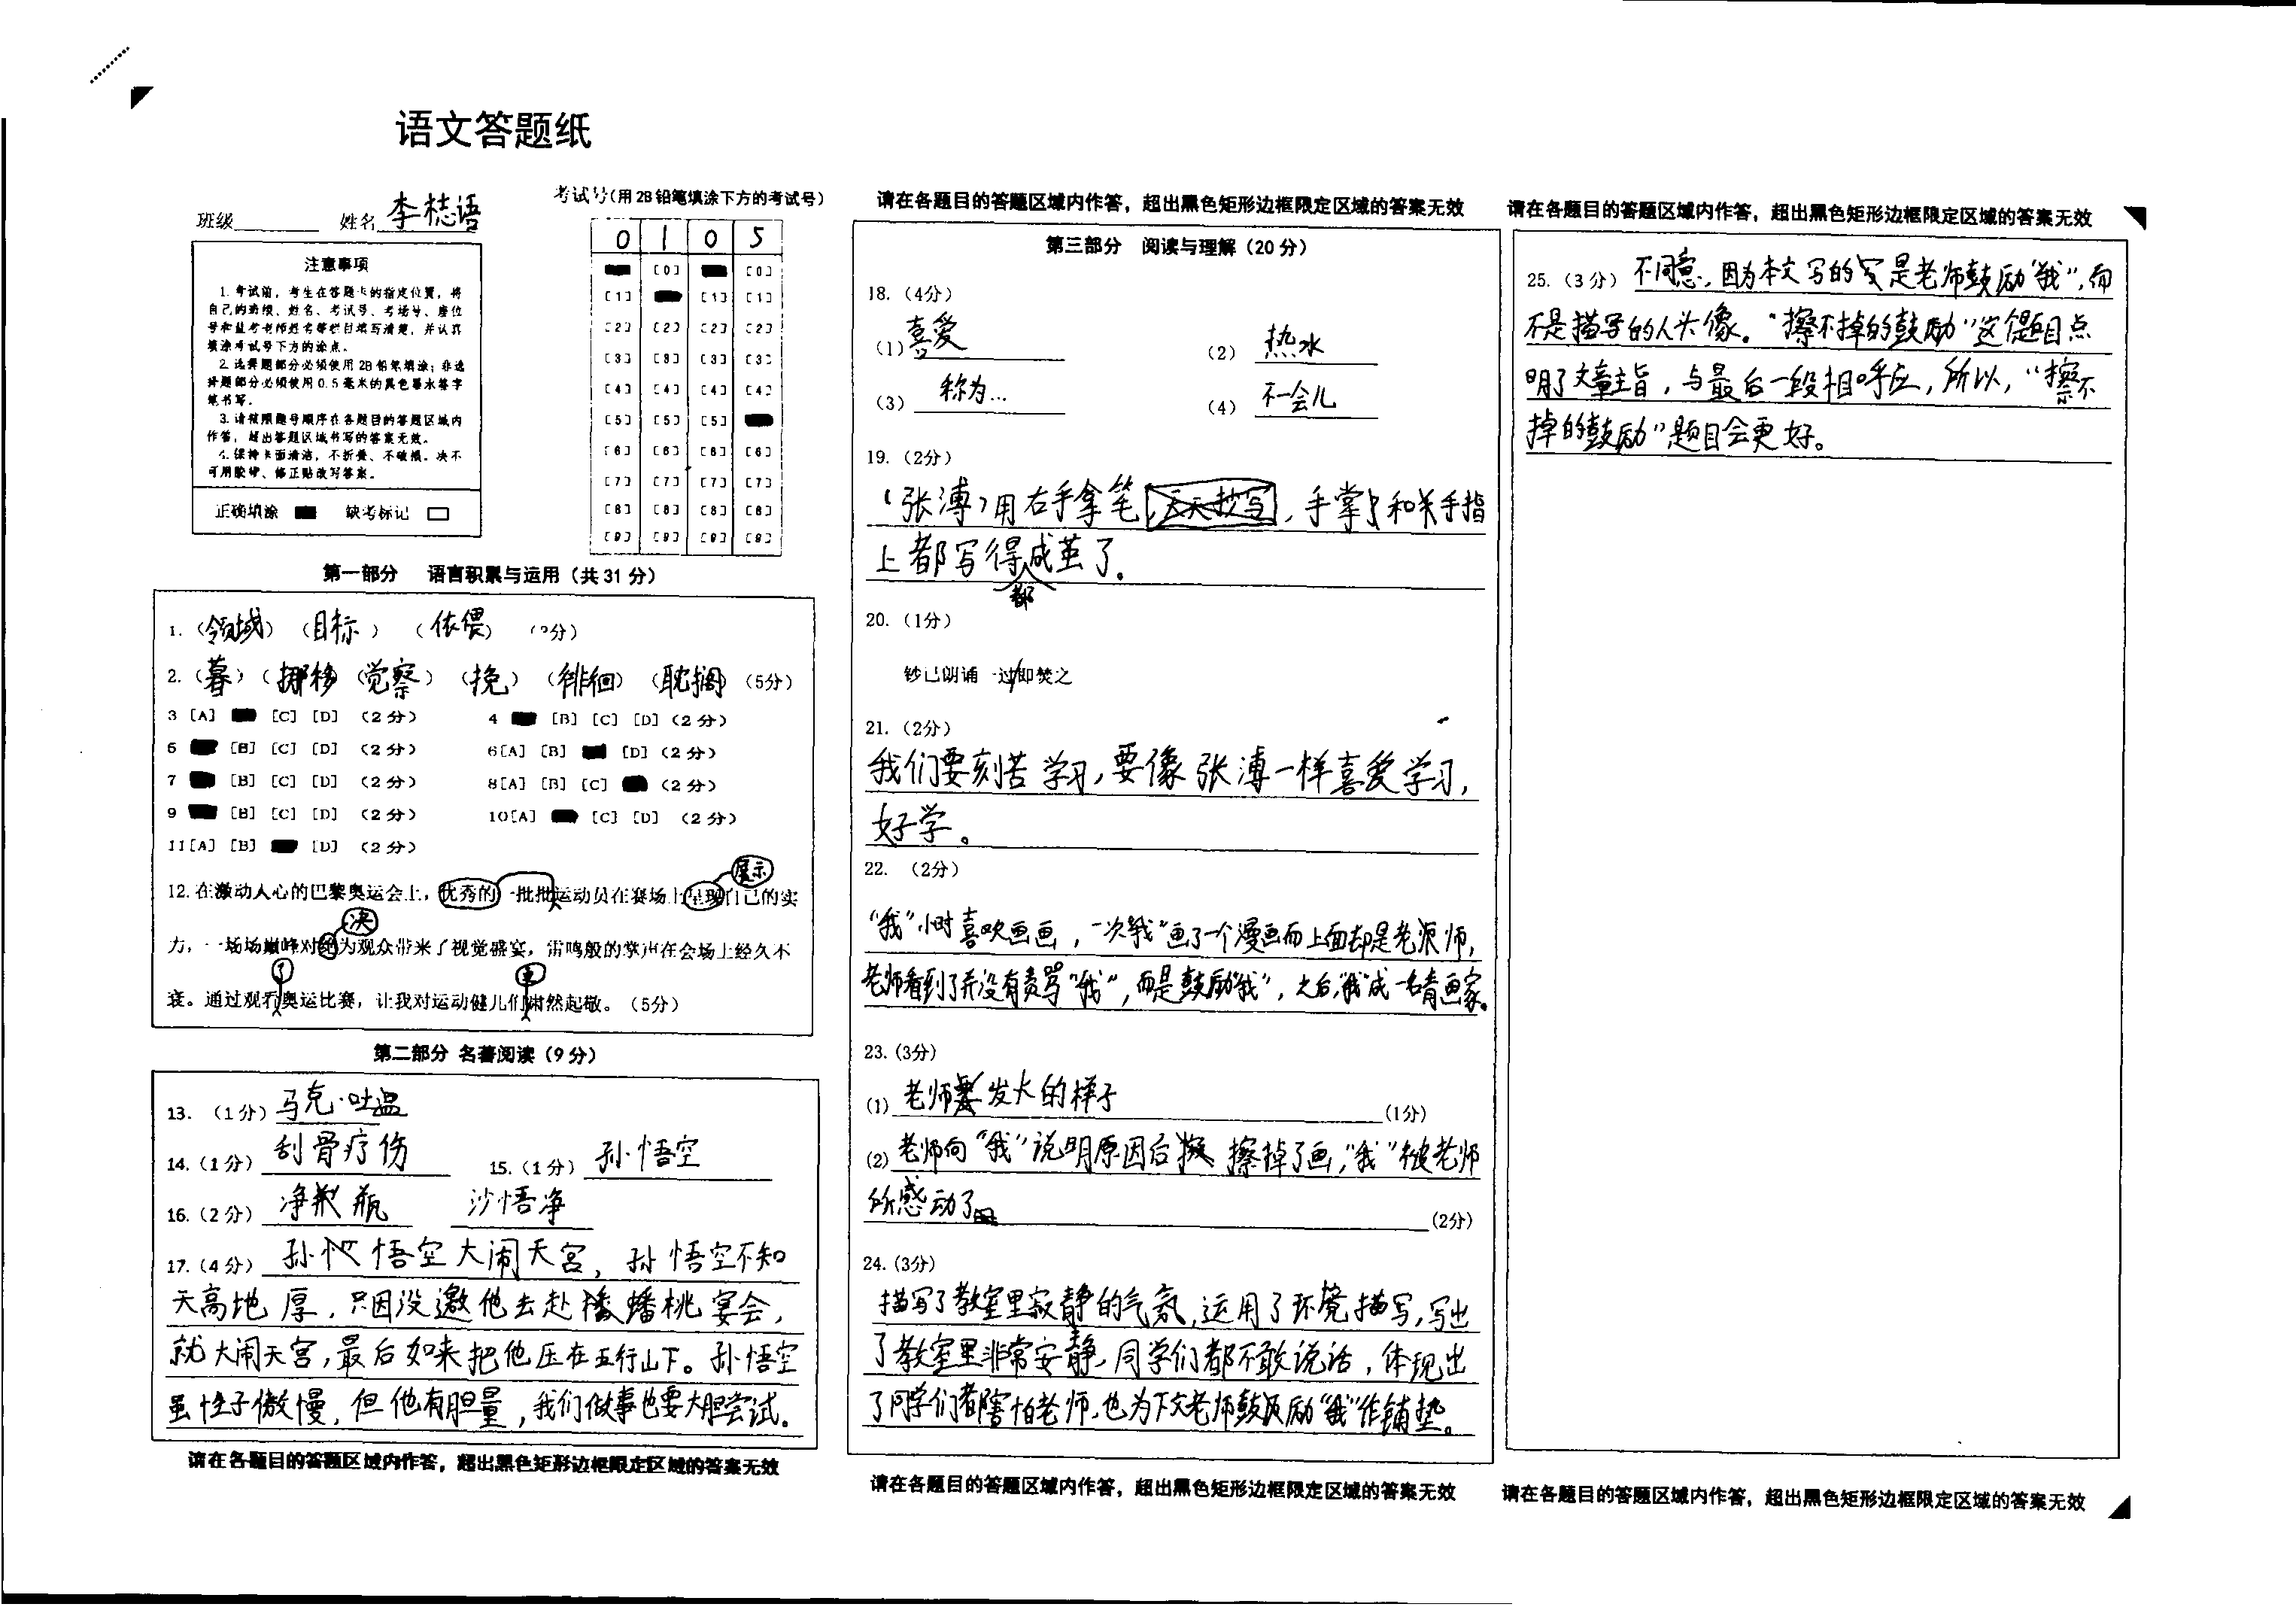 语文答题纸
班级 姓名 李梽语
考试号(用2B铅笔填涂下方的考试号)
0 1 0 5
[0] [0]
[1] [1] [1]
[2] [2] [2] [2]
[3] [3] [3] [3]
[4] [4] [4] [4]
[5] [5] [5]
[6] [6] [6] [6]
[7] [7] [7] [7]
[8] [8] [8] [8]
[9] [9] [9] [9]
注意事项
1.考试前,考生在答题卡的指定位置,将
自己的班级、姓名、考试号、考场号、座位
号和监考老师姓名等栏目填写清楚,并认真
填涂考试号下方的涂点。
2.选择题部分必须使用2B铅笔填涂;非选
择题部分必须使用0.5毫米的黑色墨水签字
笔书写。
3.请按照题号顺序在各题目的答题区域内
作答,超出答题区域书写的答案无效。
4.保持卡面清洁,不折叠、不破损。决不
可用胶带、修正贴改写答案。
正确填涂 缺考标记
第一部分 语言积累与运用(共31分)
1.(领域)(目标)(依偎)(3分)
2.(暮)(挪移)(觉察)(挽)(徘徊)(耽搁)(5分)
3 [A] [C] [D] (2分) 4 [B] [C] [D] (2分)
5 [B] [C] [D] (2分) 6[A] [B] [D] (2分)
7 [B] [C] [D] (2分) 8[A] [B] [C] (2分)
9 [B] [C] [D] (2分) 10[A] [C] [D] (2分)
11[A] [B] [D] (2分)
展示
12.在激动人心的巴黎奥运会上,优秀的一批批运动员在赛场上呈现自己的实
决
力,一场场巅峰对绝为观众带来了视觉盛宴,雷鸣般的掌声在会场上经久不
了 更
衰。通过观看奥运比赛,让我对运动健儿们肃然起敬。(5分)
第二部分 名著阅读(9分)
13.(1分)马克·吐温
14.(1分) 刮骨疗伤 15.(1分) 孙悟空
16.(2分) 沙悟净
17.(4分) 孙悟空大闹天宫,孙悟空不知
天高地厚,只因没邀他去赴蟠桃宴会,
就大闹天宫,最后如来把他压在五行山下。孙悟空
虽性子傲慢,但他有胆量,我们做事也要大胆尝试。
请在各题目的答题区域内作答,超出黑色矩形边框限定区域的答案无效
请在各题目的答题区域内作答,超出黑色矩形边框限定区域的答案无效
第三部分 阅读与理解(20分)
18.(4分)
(1)喜爱 (2) 热水
(3) 称为… (4) 不一会儿
19.(2分)
(张溥)用右手拿笔,手掌和关手指
上都写得都成茧了。
20.(1分)
钞已朗诵一过/即焚之
21.(2分)
我们要刻苦学习,要像张溥一样喜爱学习,
好学。
22.(2分)
“我”小时喜欢画画,一次“我”画了一个漫画而上面却是老师,
老师看到了并没有责骂“我”,而是鼓励“我”,之后,“我”成一名青画家。
23.(3分)
(1) 老师发火的样子 (1分)
(2) 老师向“我”说明原因后 擦掉了画,“我”被老师
所感动了 (2分)
24.(3分)
描写了教室里寂静的气氛,运用了环境描写,写出
了教室里非常安静,同学们都不敢说话,体现出
了同学们都害怕老师,也为下文老师鼓励“我”作铺垫。
请在各题目的答题区域内作答,超出黑色矩形边框限定区域的答案无效
请在各题目的答题区域内作答,超出黑色矩形边框限定区域的答案无效
25.(3分) 不同意,因为本文写的是老师鼓励“我”,而
不是描写的人头像。“擦不掉的鼓励”这个题目点
明了文章主旨,与最后一段相呼应,所以,“擦不
掉的鼓励”题目会更好。
请在各题目的答题区域内作答,超出黑色矩形边框限定区域的答案无效